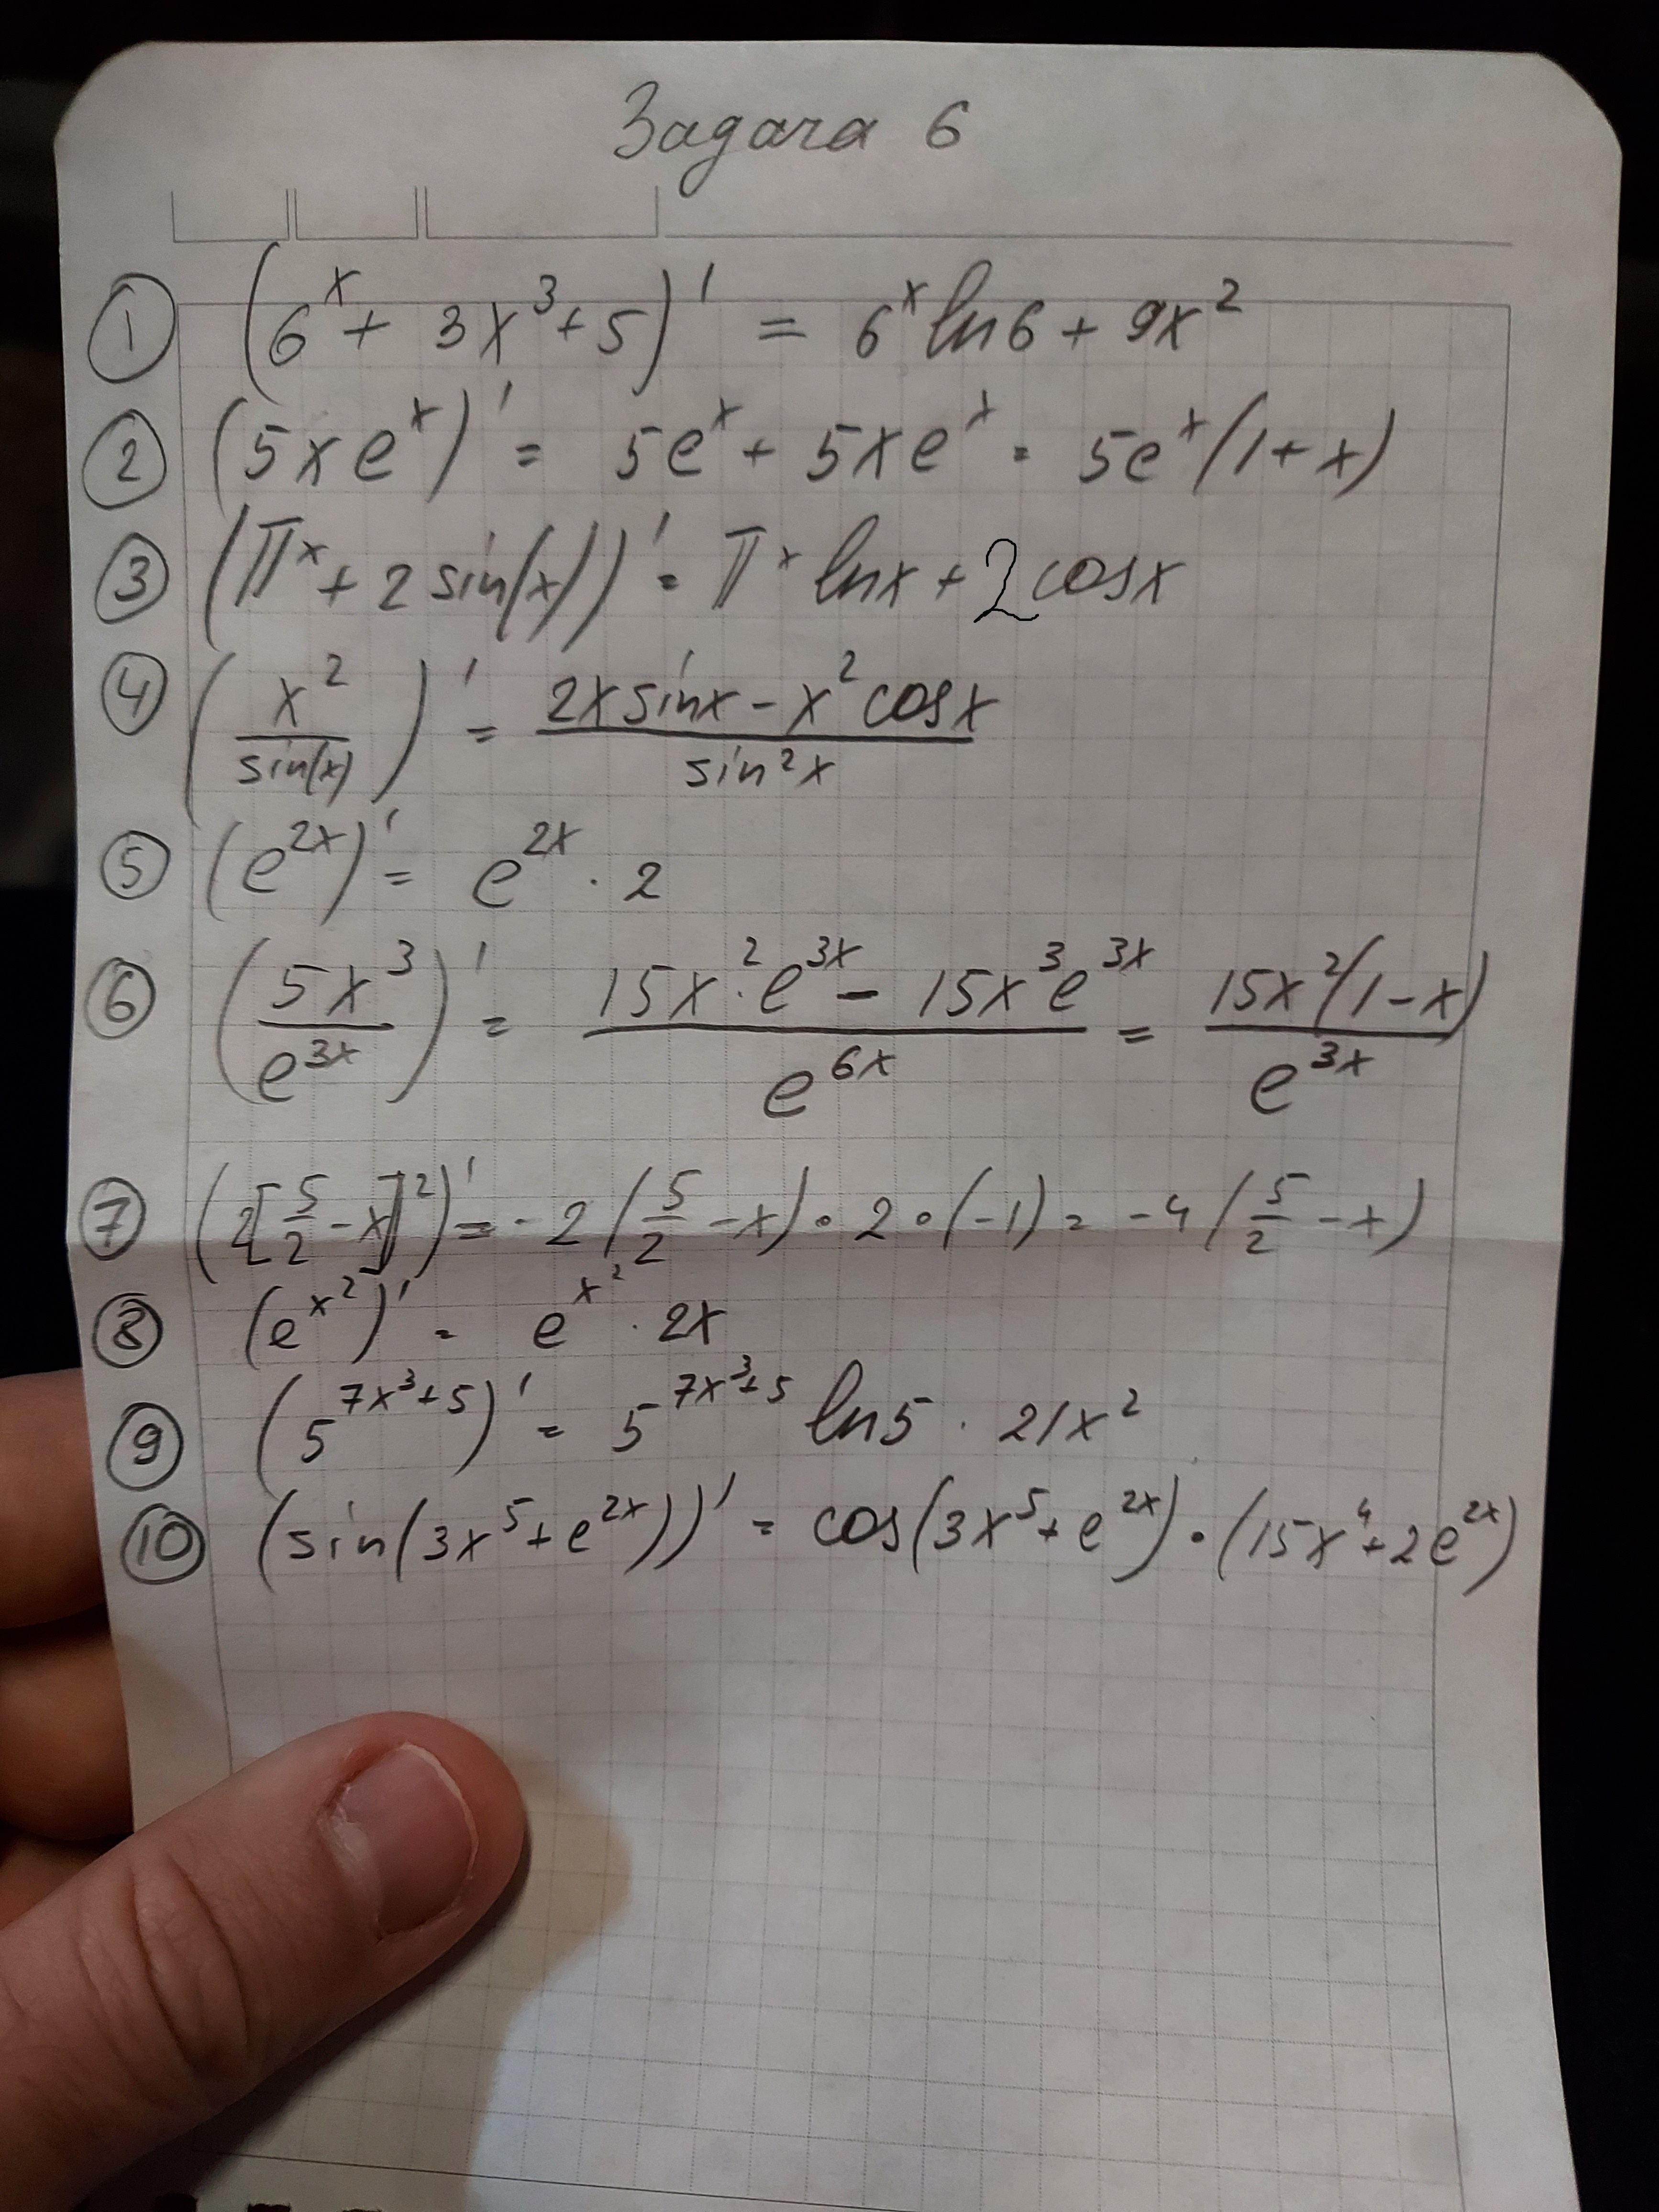 Задача 6
① (6^x + 3x^3 + 5)' = 6^x ln6 + 9x^2
② (5xe^x)' = 5e^x + 5xe^x = 5e^x(1+x)
③ (π^x + 2 sin(x))' = π^x lnx + 2 cosx
④ (x^2/sin(x))' = (2x sinx - x^2 cosx)/(sin^2 x)
⑤ (e^{2x})' = e^{2x} · 2
⑥ (5x^3/e^{3x})' = (15x^2 · e^{3x} - 15x^3 e^{3x})/(e^{6x}) = 15x^2(1-x)/e^{3x}
⑦ (2[5/2 - x]^2)' = -2(5/2 - x) · 2 · (-1) = -4(5/2 - x)
⑧ (e^{x^2})' = e^{x^2} · 2x
⑨ (5^{7x^3+5})' = 5^{7x^3+5} ln5 · 21x^2
⑩ (sin(3x^5 + e^{2x}))' = cos(3x^5 + e^{2x}) · (15x^4 + 2e^{2x})